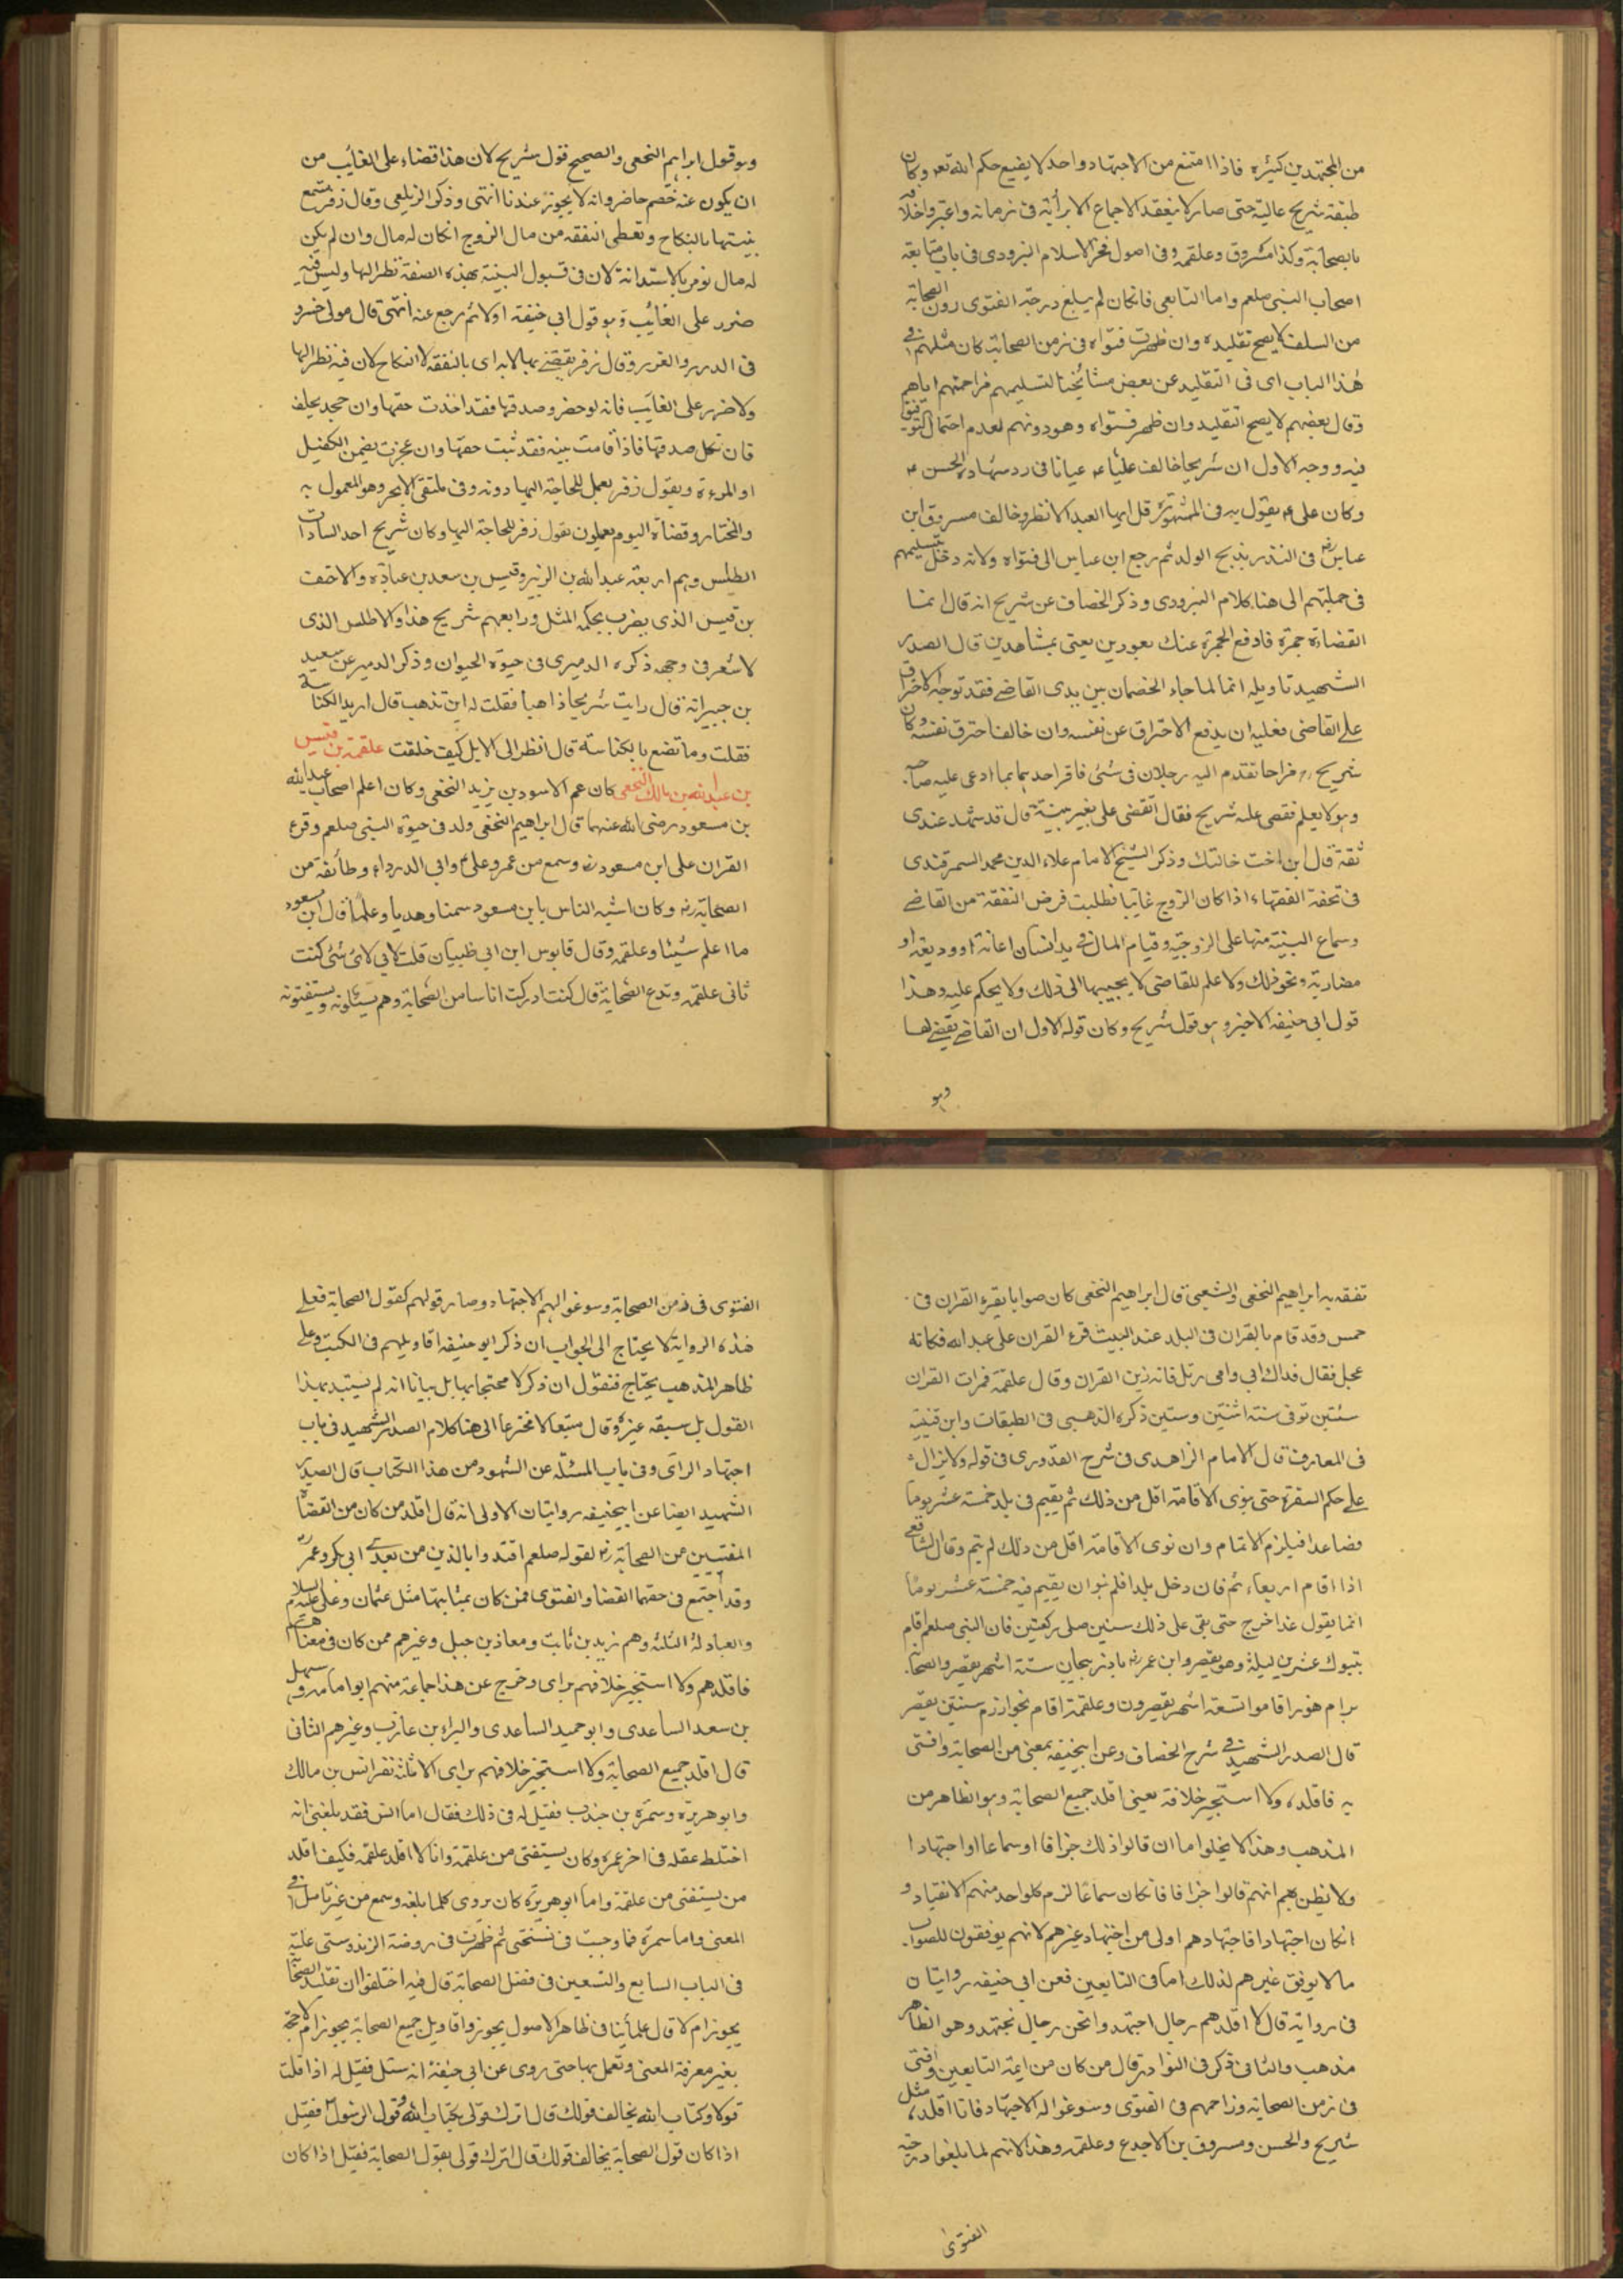 من المجتهدين كثيره فاذا امتنع من الاجتهاد واحد لا يضيع حكم الله تعه وكان
طبقة شريح عالية حتى صار لا ينعقد الاجماع الا برأيه فى زمانه واعتبر واخلافه
بالصحابة وكذا مسروق وعلقمه وفى اصول فخر الاسلام البزدوى فى باب متابعة
اصحاب النبى صلعم واما التابعى فانكان لم يبلغ درجة الفتوى زمن الصحابة
من السلف لا يصح تقليده وان ظهرت فتواه فى زمن الصحابة كان مثلهم فى
هذا الباب اى فى التقليد عن بعض مشائخنا لتسليمهم مزاحمتهم اياهم
وقال بعضهم لا يصح التقليد وان ظهر فتواه وهو دونهم لعدم احتمال التوقيف
فيه ووجه الاول ان شريحا خالف عليا عيانا فى رد شهادة الحسن
وكان على يقول به فى المشهورة قل ايها العبد الانظر وخالف مسروق ابن
عباس رض فى النذر بذبح الولد ثم رجع ابن عباس الى فتواه ولانه دخل بتسليمهم
فى جملتهم الى هنا كلام البزودى وذكر الخصاف عن شريح انه قال انما
القضاة جمرة فادفع الجمرة عنك بعودين يعنى بشاهدين قال الصدر
الشهيد تاويله انما لما جاء الخصمان بين يدى القاضى فقد توجه الاحتراق
على القاضى فعليه ان يدفع الاحتراق عن نفسه وان خالف احترق نفسه وكان
شريح مزاحا تقدم اليه رجلان فى شئ فاقر احدهما بما ادعى عليه صاحبه
وهو لا يعلم فقضى عليه شريح فقال اتقضى على بغير بينة قال قد شهد عندى
ثقة قال ابن اخت خالتك وذكر الشيخ الامام علاء الدين محمد السمرقندى
فى تحفة الفقهاء اذا كان الزوج غايبا فطلبت فرض النفقة من القاضى
وسماع البينة منها على الزوجية وقيام المال فى يد انسان اعانة او وديعة او
مضاربة ونحو ذلك ولا علم للقاضى لا يجيبها الى ذلك ولا يحكم عليه وهذا
قول ابى حنيفه الاخير وهو قول شريح وكان قوله الاول ان القاضى يقضى لها
وهو
وهو قول ابراهيم النخعى والصحيح قول شريح لان هذا قضاء على الغائب من
ان يكون عنه خصم حاضر وانه لا يجوز عندنا انتهى وذكر الزيلعى وقال زفر تسمع
بينتها بالنكاح وتعطى النفقه من مال الزوج انكان له مال وان لم يكن
له مال تؤمر بالاستدانة لان فى قبول البينة بهذه الصفة نظرا لها وليس فيه
ضرر على الغائب وهو قول ابى حنيفة اولا ثم رجع عنه انتهى قال مولى خسرو
فى الدرر والغرر وقال زفر يقضى بها لا به اى بالنفقه لا النكاح لان فيه نظرا لها
ولا ضرر على الغائب فانه لو حضر وصدقها فقد اخذت حقها وان جحد يحلف
فان نكل صدقها فاذا اقامت بينه فقد ثبت حقها وان عجزت يضمن الكفيل
او المرءة وبقول زفر يعمل للحاجة اليها دونه وفى ملتقى الابحر وهو المعمول به
والمختار وقضاة اليوم يعملون بقول زفر للحاجة اليها وكان شريح احد السادات
الطلس وهم اربعة عبد الله بن الزبير وقيس بن سعد بن عبادة والاحنف
بن قيس الذى يضرب بحكمه المثل ورابعهم شريح هذا والاطلس الذى
لا شعر فى وجهه ذكره الدميرى فى حيوة الحيوان وذكر الدمير عن سعيد
بن جبير انه قال رايت شريحا ذاهبا فقلت له اين تذهب قال اريد الكناسة
فقلت وما تصنع بالكناسة قال انظر الى الابل كيف خلقت علقمة بن قيس
بن عبد الله بن مالك النخعى كان عم الاسود بن يزيد النخعى وكان اعلم اصحاب عبد الله
بن مسعود رضى الله عنهما قال ابراهيم النخعى ولد فى حيوة النبى صلعم وقرء
القران على ابن مسعود رض وسمع من عمر وعلى وابى الدرداء وطائفة من
الصحابة رض وكان اشبه الناس بابن مسعود سمتا وهديا وعلما قال ابن مسعود
ما اعلم شيئا وعلقمه وقال قابوس ابن ابى ظبيان قلت لابى لاى شئ كنت
تاتى علقمه وتدع الصحابة قال كنت ادركت اناسا من الصحابة وهم يسئلونه ويستفتونه
تفقه به ابراهيم النخعى والشعبى قال ابراهيم النخعى كان صوابا يقرء القران فى
خمس وقد قام بالقران فى البلد عند البيت قرء القران على عبد الله فكانه
عجل فقال فداك ابى وامى رتل فانه زين القران وقال علقمة قرات القران
سنتين توفى سنة اثنتين وستين ذكره الذهبى فى الطبقات وابن قتيبة
فى المعارف قال الامام الزاهدى فى شرح القدورى فى قوله ولا يزال
على حكم السفرة حتى ينوى الاقامة اقل من ذلك ثم يقيم فى بلد خمسة عشر يوما
فصاعدا فيلزم الاتمام وان نوى الاقامة اقل من ذلك لم يتم وقال الشافعى
اذا اقام اربعاء ثم فان دخل بلدا فلم ينو ان يقيم فيه خمسة عشر يوما
انما يقول غدا خرج حتى بقى على ذلك سنين صلى ركعتين فان النبى صلعم اقام
بتبوك عشرين ليلة وهو يقصر وابن عمر رض باذربيجان ستة اشهر يقصر والصحابة
برام هرمز اقاموا تسعة اشهر يقصرون وعلقمة اقام بخوارزم سنتين يقصر
قال الصدر الشهيد فى شرح الخصاف وعن ابيحنيفه بمعنى من الصحابة وافتى
به فاقلده ولا استجيز خلافه يعنى اقلد جميع الصحابة وهو الظاهر من
المذهب وهذا لا يخلوا اما ان قالوا ذلك جزافا او سماعا او اجتهادا
ولا نظن بهم انهم قالوا جزافا فانكان سماعا لزم كلواحد منهم الانقياد و
انكان اجتهادا فاجتهادهم اولى من اجتهاد غيرهم لانهم يوفقون للصواب
ما لا يوفق غيرهم لذلك اما فى التابعين فعن ابى حنيفه روايتان
فى رواية قال لا اقلدهم رجال اجتهد وانحن رجال نجتهد وهو الظاهر
مذهب والثانى ذكر فى النوادر قال من كان من ايمة التابعين وافتى
فى زمن الصحابة وزاحمهم فى الفتوى وسوغوا له الاجتهاد فانا اقلده مثل
شريح والحسن ومسروق بن الاجدع وعلقمه وهذا لانهم لما بلغوا درجة
الفتوى
الفتوى فى زمن الصحابة وسوغوا لهم الاجتهاد وصار قولهم كقول الصحابة فعلى
هذه الرواية لا يحتاج الى الجواب ان ذكر ابو حنيفه اقاويلهم فى الكتب وعلى
ظاهر المذهب يحتاج فنقول ان ذكر لا محتجا بها بل بيانا انه لم يستبد بهذا
القول بل سبقه غيره وقال متبعا لا مخترعا الى هنا كلام الصدر الشهيد فى باب
اجتهاد الراى وفى باب المسئله عن الشهود من هذا الكتاب قال الصدر
الشهيد ايضا عن ابيحنيفه روايتان الاولى انه قال اقلد من كان من القضاة
المفتيين من الصحابة رض لقوله صلعم اقتدوا بالذين من بعدى ابى بكر وعمر
وقد اجتمع فى حقهما القضاء والفتوى فمن كان بمثابتهما مثل عثمان وعلى عليه السلام
والعبادلة الثلثه وهم زيد بن ثابت ومعاذ بن جبل وغيرهم ممن كان فى معناهم
فاقلدهم ولا استجيز خلافهم براى وخرج عن هذا جماعة منهم ابو امامه وسهل
بن سعد الساعدى وابو حميد الساعدى والبراء بن عازب وغيرهم الثانى
قال اقلد جميع الصحابة ولا استجيز خلافهم براى الا ثلثة نفر انس بن مالك
وابو هريره وسمرة بن جندب فقيل له فى ذلك فقال اما انس فقد بلغنى انه
اختلط عقله فى اخر عمره وكان يستفتى من علقمة وانا لا اقلد علقمه فكيف اقلد
من يستفتى من علقمة واما ابو هريرة كان يروى كلما بلغه وسمع من غير تامل فى
المعنى واما سمرة فما وجبت فى نسختى ثم ظهرت فى روضة الزندوستى عليه
فى الباب السابع والتسعين فى فضل الصحابة قال فيه اختلفوا ان تقليد الصحابة
يجوز ام لا قال علمائنا فى ظاهر الاصول يجوز واقاويل جميع الصحابة يجوز ام لا حجة
بغير معرفة المعنى ونعمل بها حتى روى عن ابى حنيفة انه سئل فقيل له اذا قلت
قولا وكتاب الله يخالف قولك قال اترك قولى بكتاب الله وقول الرسول فقيل
اذا كان قول الصحابة يخالف قولك قال اترك قولى بقول الصحابة فقيل اذا كان